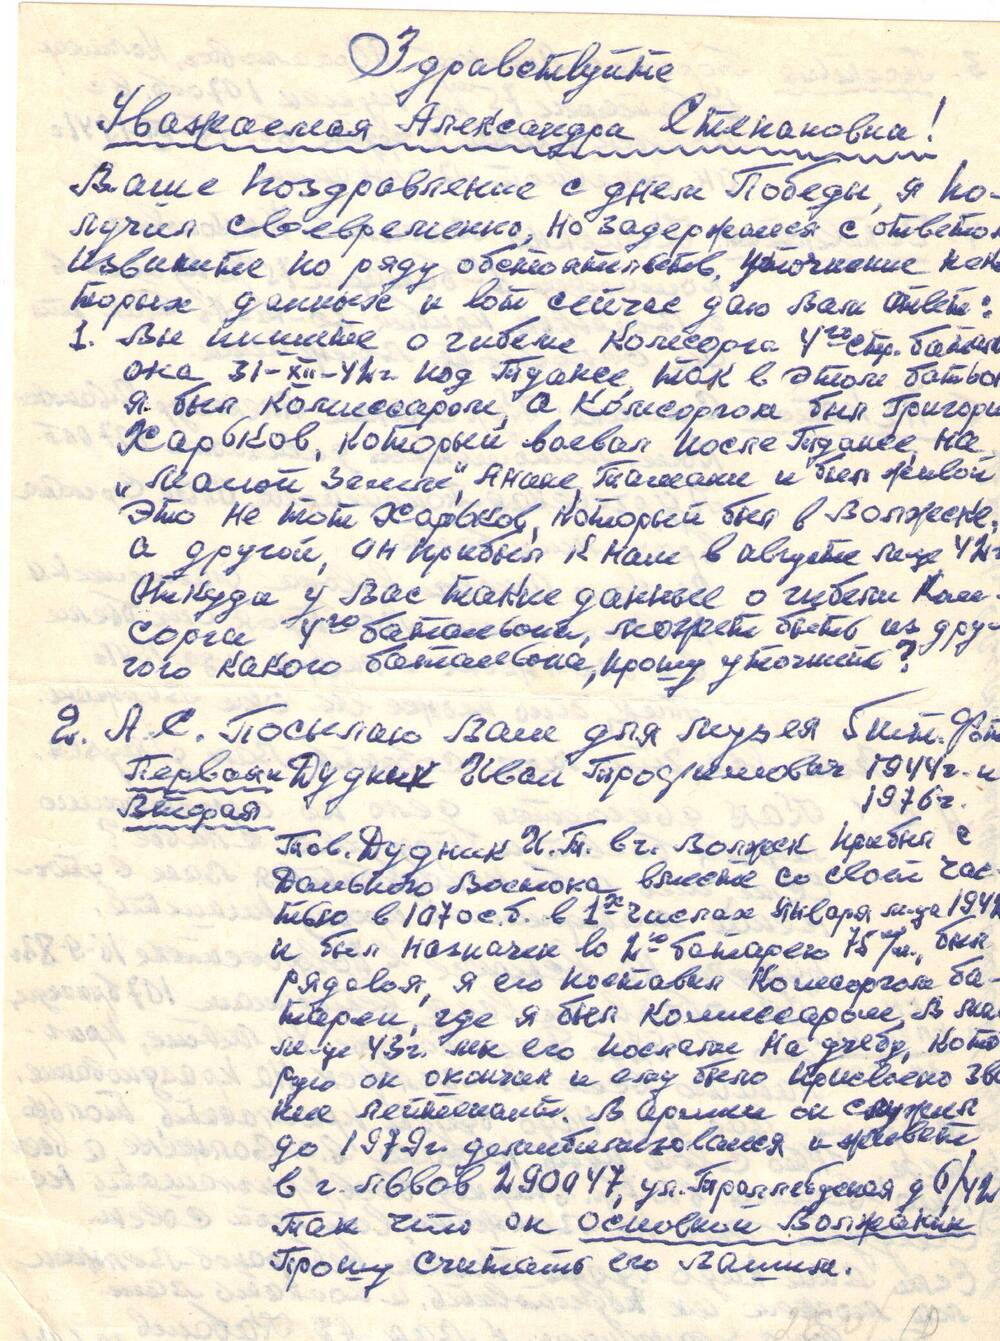 Здравствуйте
Уважаемая Александра Степановна!
Ваше поздравление с днем Победы, я по-
лучил своевременно, но задержался с ответом
извините по ряду обстоятельств, уточнение неко
торых данных и вот сейчас даю Вам ответ:
1. Вы пишите о гибели Комсорга 4го стр. баталь
она 31-XII-42г. под Туапсе, так в этом батальон
я был Комиссаром, а Комсоргом был Григори
Харьков, который воевал после Туапсе, на
„Малой Земле" Анапе, Тамани и был живой
Это не тот Харьков, который был в Волжске,
а другой, он прибыл к нам в августе м-це 42г
Откуда у Вас такие данные о гибели Ком
сорга 4го батальона, может быть из дру-
гого какого баталевона, прошу уточнить?
2. А.С. Посылаю Вам для музея 5 шт. фот
Первая - Дудник Иван Трофимович 1944г. и
Вторая 1976г.
Тов. Дудник И.Т. в г. Волжск прибыл с
Дальнего Востока, вместе со своей час
тью в 107 ос.б. в 1х числах января м-ца 1942
и был назначен во 2ю батарею 75 м/м., был
рядовой, я его поставил Комсоргом ба
тареи, где я был Комиссаром, В мае
м-це 43г. мы его послали на учебу, кото
рую он окончил и ему было присвоено зва
ние лейтенант. В армии он служил
до 1979г. демобилизовался и живет
в г. Львов 290047, ул. д 6/42
Так что он основной Волжанин
Прошу считать его Вашим.